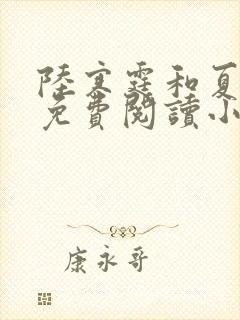 陸寒霆和夏
免費閱讀小
康永哥